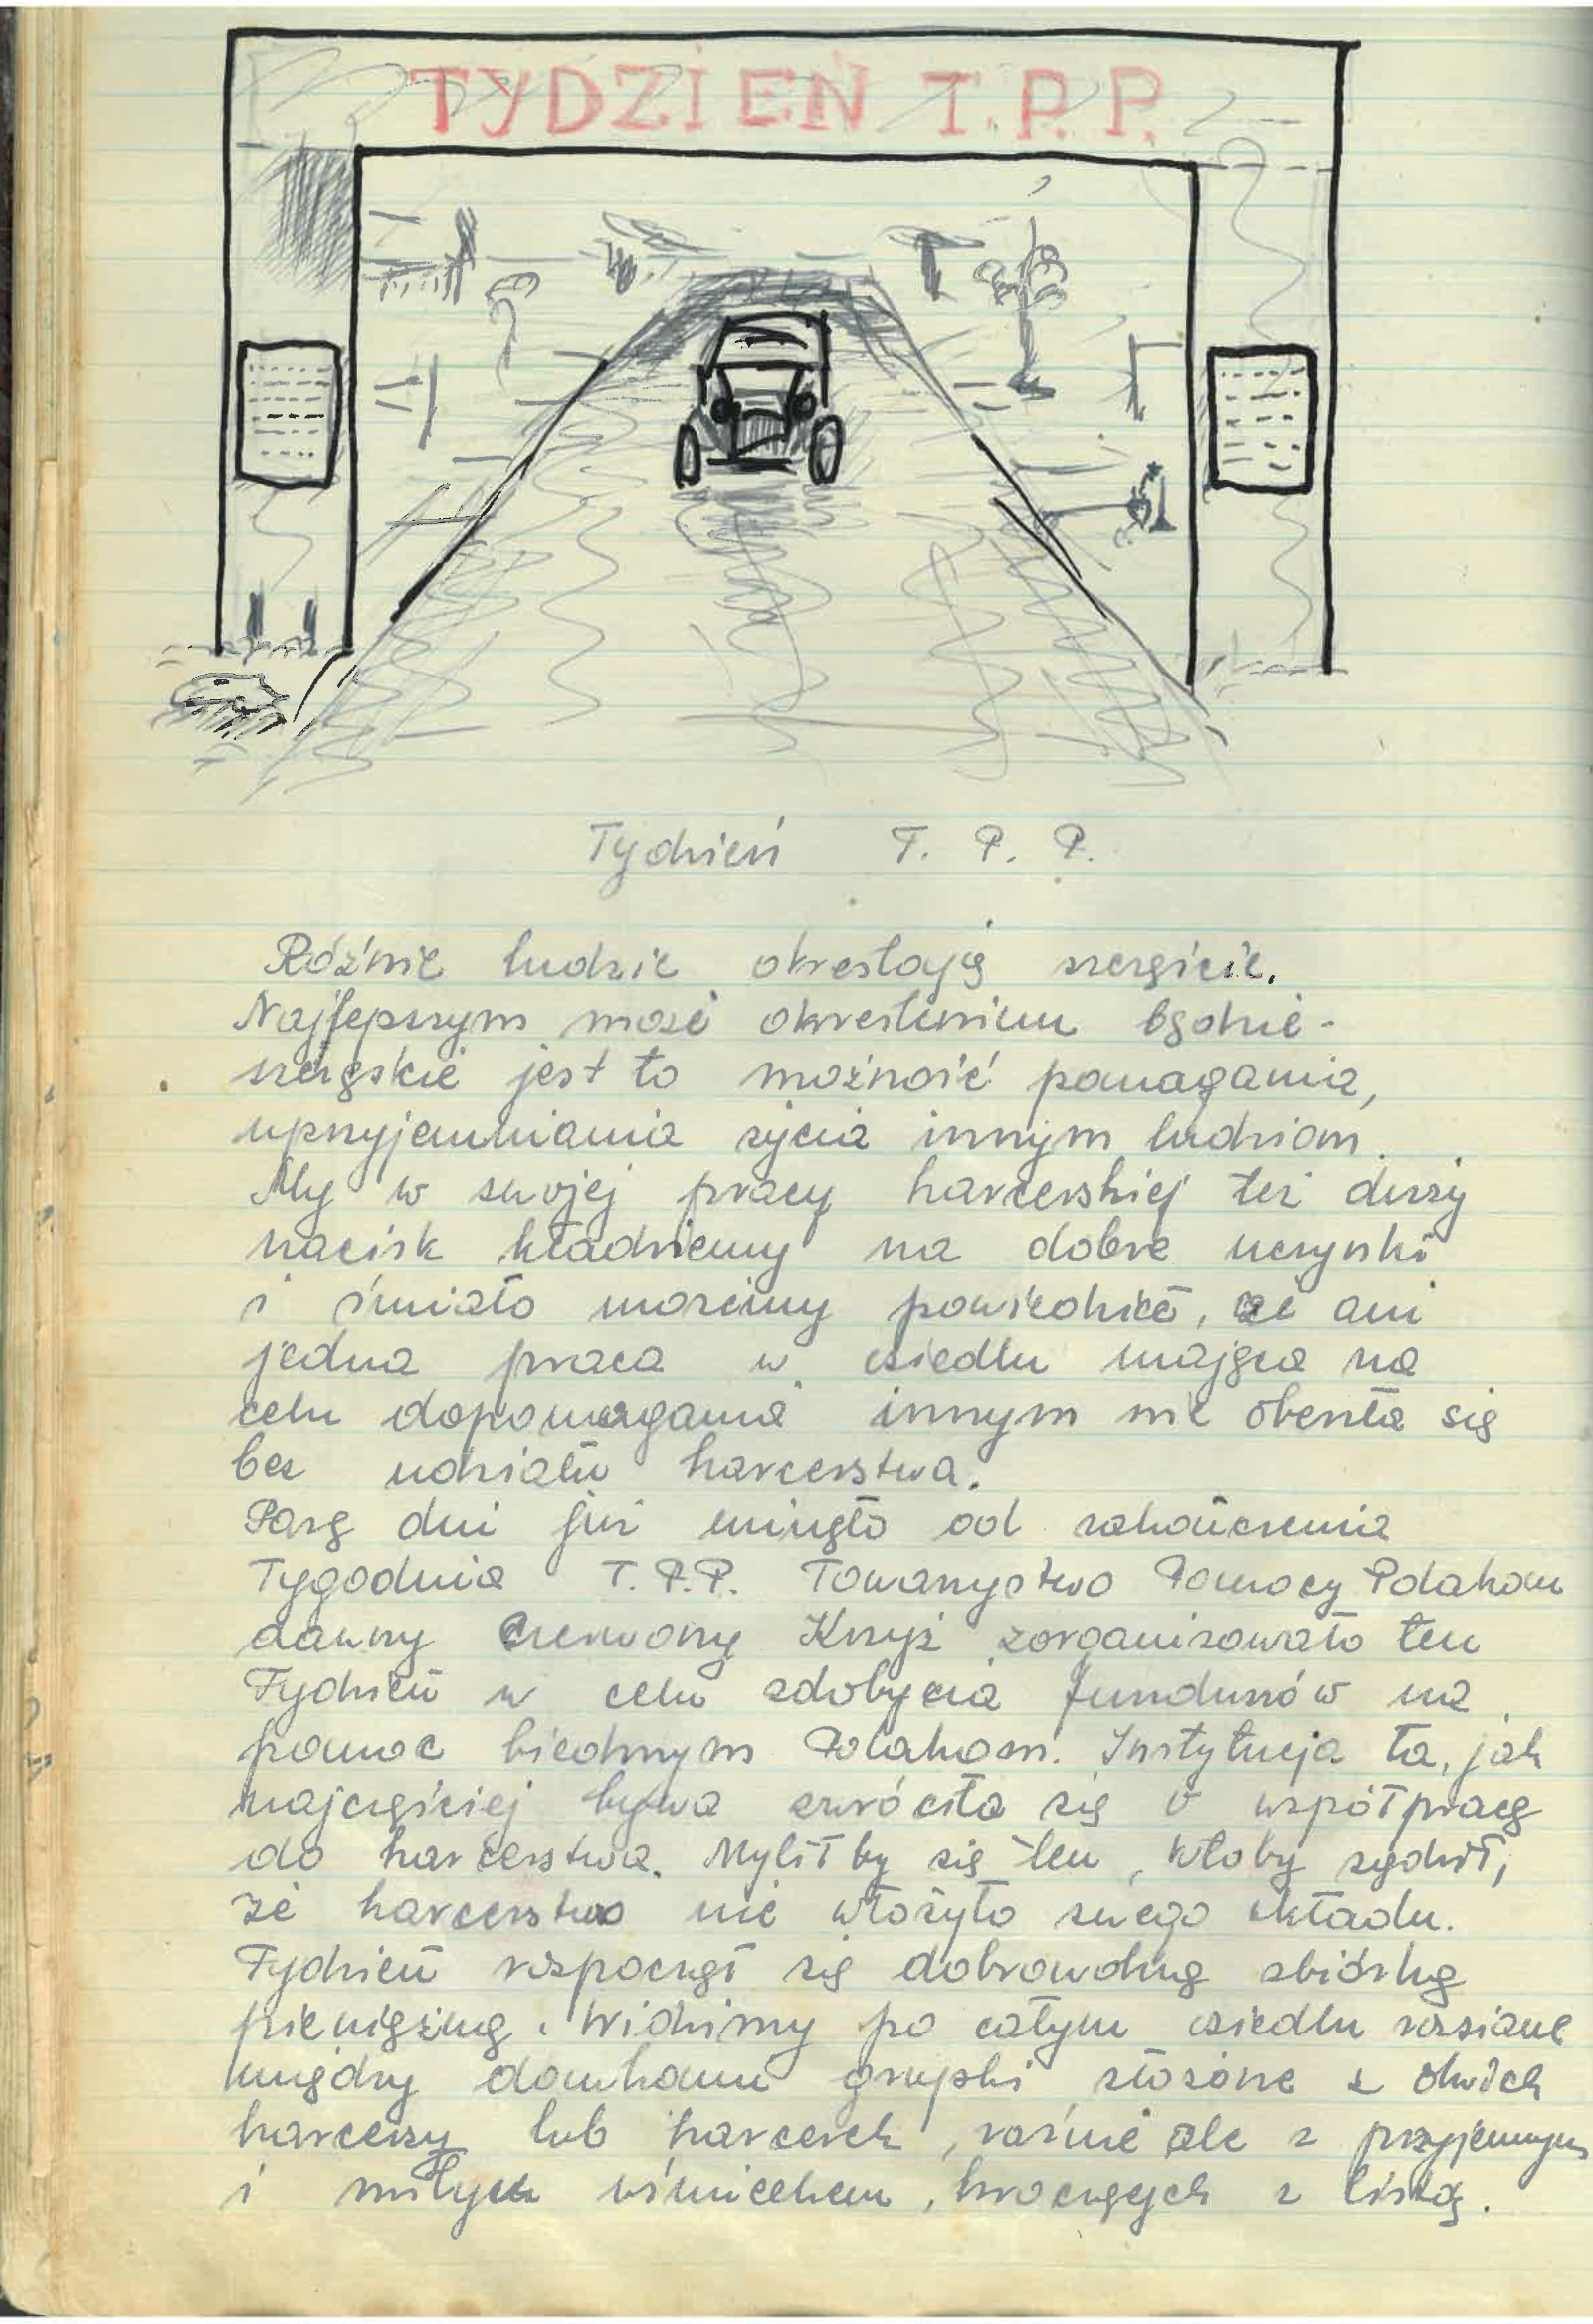 TYDZIEŃ T.P.P.
Tydzień T. P. P.
Różnie ludzie określają szczęście.
Najlepszym może określeniem będzie -
szczęście jest to możność pomagania,
uprzyjemniania życia innym ludziom.
My w swojej pracy harcerskiej też duży
nacisk kładziemy na dobre uczynki
i śmiało możemy powiedzieć, że ani
jedna praca w osiedlu mająca na
celu dopomagania innym nie obeszła się
bez udziału harcerstwa.
Parę dni już minęło od zakończenia
Tygodnia T.P.P. Towarzystwo Pomocy Polakom
dawny Czerwony Krzyż zorganizowało ten
Tydzień w celu zdobycia funduszów na
pomoc biednym Polakom. Instytucja ta, jak
najczęściej bywa zwróciła się o współpracę
do harcerstwa. Myliłby się ten, ktoby sądził,
że harcerstwo nie włożyło swego wkładu.
Tydzień rozpoczął się dobrowolną zbiórką
pieniężną. Widzimy po całym osiedlu rozsiane
między domkami grupki złożone z dwóch
harcerzy lub harcerek, raźnie ale z przyjemnym
i miłym uśmiechem, kroczących z listą.